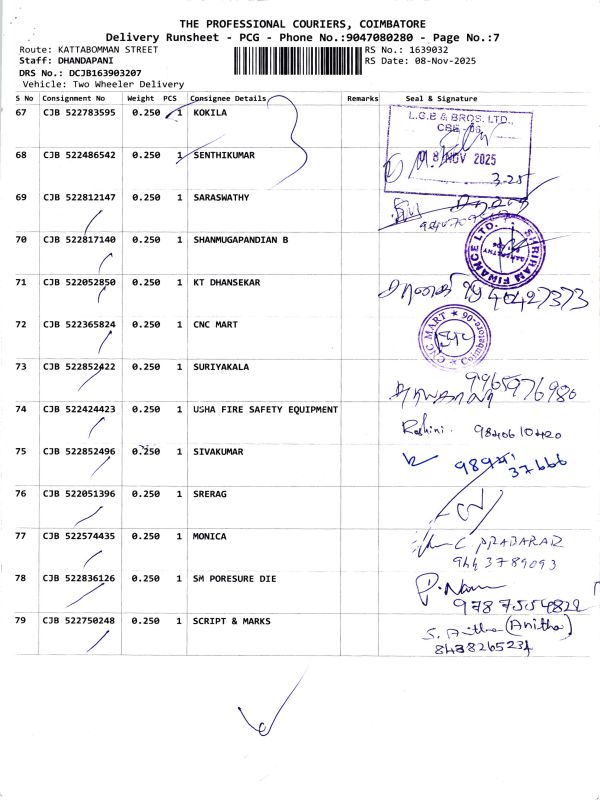 THE PROFESSIONAL COURIERS, COIMBATORE
Delivery Runsheet - PCG - Phone No.:9047080280 - Page No.:7
Route: KATTABOMMAN STREET RS No.: 1639032
Staff: DHANDAPANI RS Date: 08-Nov-2025
DRS No.: DCJB163903207
Vehicle: Two Wheeler Delivery
S No Consignment No Weight PCS Consignee Details Remarks Seal & Signature
67 CJB 522783595 0.250 1 KOKILA
L.G.B & BROS. LTD.,
CBE - 06
68 CJB 522486542 0.250 1 SENTHIKUMAR
08 NOV 2025
3-25
69 CJB 522812147 0.250 1 SARASWATHY
70 CJB 522817140 0.250 1 SHANMUGAPANDIAN B
SHRIRAM FINANCE LTD.
71 CJB 522052850 0.250 1 KT DHANSEKAR
72 CJB 522365824 0.250 1 CNC MART
CNC MART Coimbatore-06
73 CJB 522852422 0.250 1 SURIYAKALA
9965976980
74 CJB 522424423 0.250 1 USHA FIRE SAFETY EQUIPMENT
Roshini. 9840610420
75 CJB 522852496 0.250 1 SIVAKUMAR
37666
76 CJB 522051396 0.250 1 SRERAG
77 CJB 522574435 0.250 1 MONICA
9443789093
78 CJB 522836126 0.250 1 SM PORESURE DIE
9787554822
79 CJB 522750248 0.250 1 SCRIPT & MARKS
S. Anitha (Anitha)
8438265234